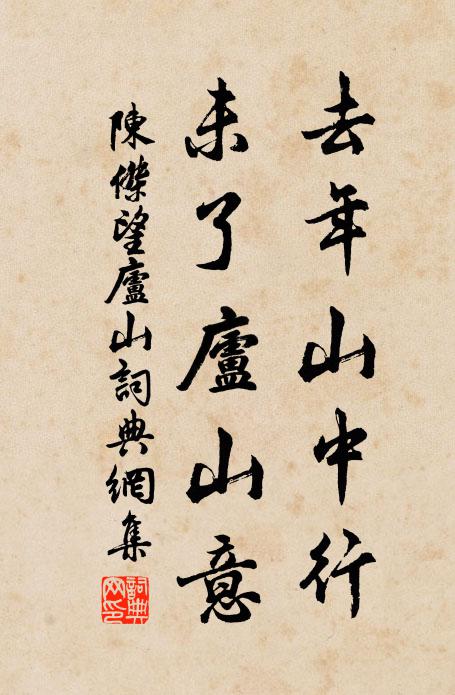 去年山中行
未了廬山意
陳傑望廬山詞典網集
詞典網印